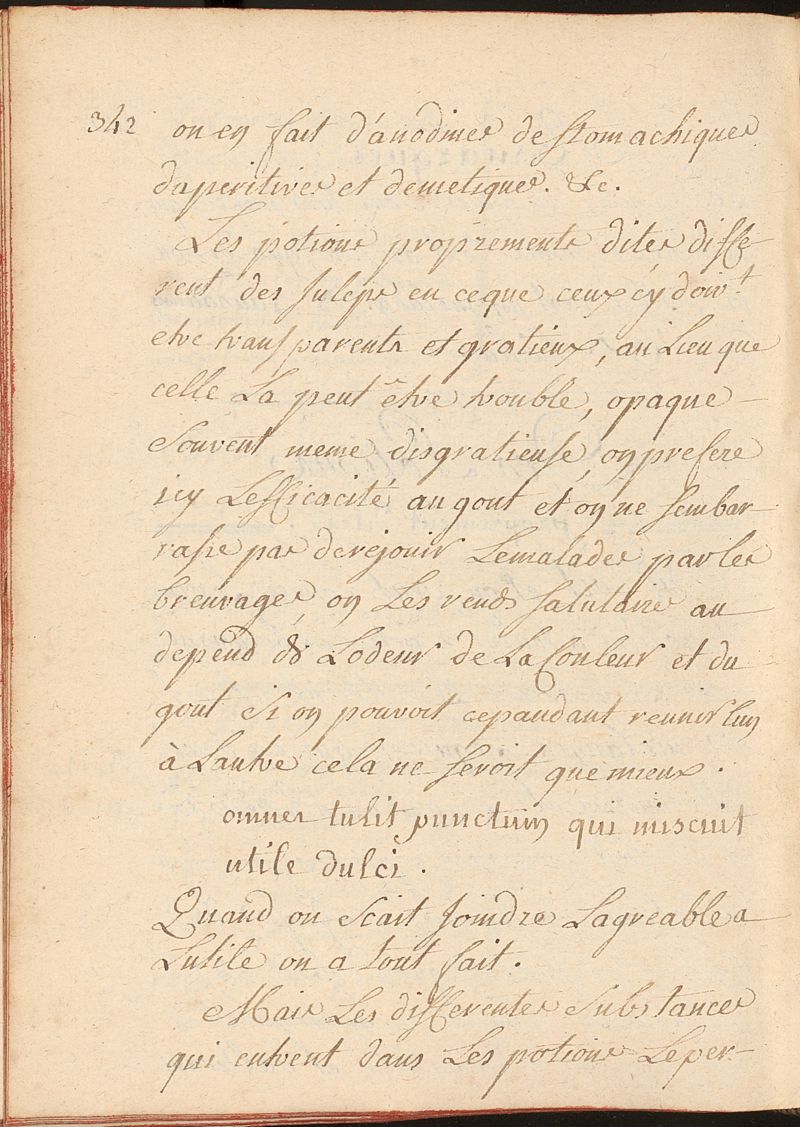 342 on en fait d'anodines de stomachiques
daperitives et demetiques. &c.
Les potions proprements dites diffe-
rent des Juleps en ceque ceux cy doivt.
etre transparents et gratieux, au Lieu que
celle La peut être trouble, opaque
Souvent meme disgratieuse, on prefere
icy Lefficacité au gout et on ne sembar-
rasse pas derejouir Lemalades par les
breuvages, on Les rends salutaire au
depend de Lodeur de La Couleur et du
gout si on pouvoit cepandant reunir lun
à Lautre cela ne seroit que mieux.
omnes tulit punctum qui miscuit
utile dulci.
Quand on scait Joindre Lagreable a
Lutile on a tout fait.
Mais Les differentes Substances
qui entrent dans Les potions Leper-